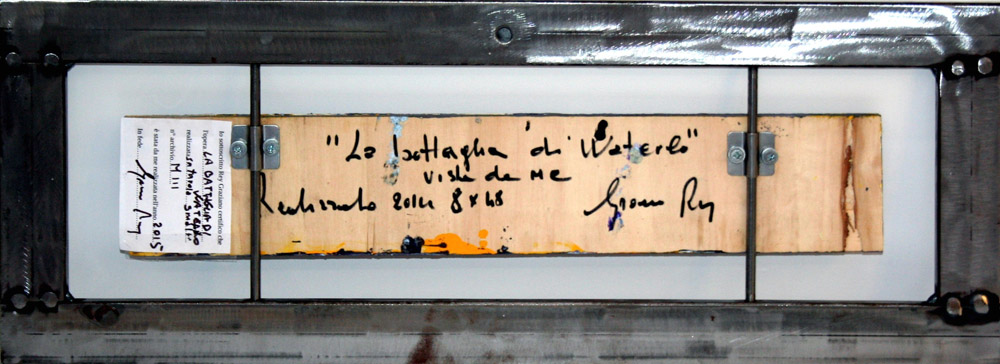 "La battaglia di Waterlo"
Vista da me
Realizzato 2014 8x48
Io sottoscritto Rey Graziano certifico che
l'opera LA BATTAGLIA DI
WATERLOO
realizzata su tavola smalti
n° archivio M III
è stata da me realizzata nell'anno 2015
In fede